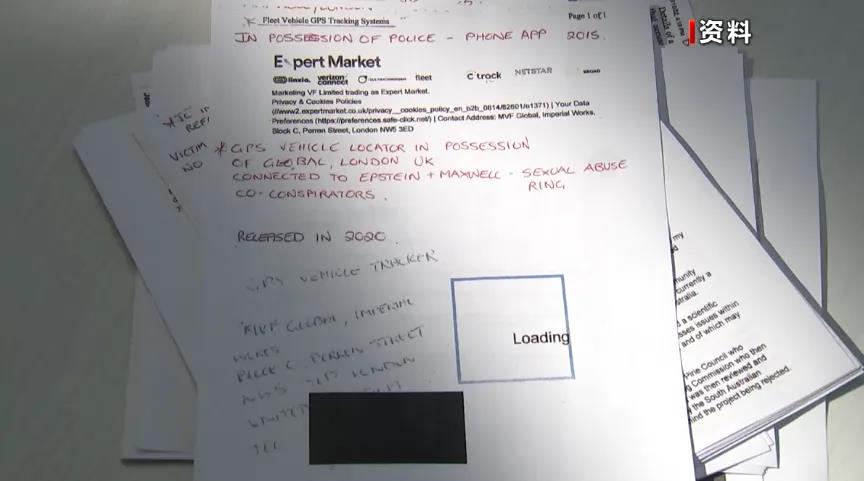 资料
Fleet Vehicle GPS Tracking Systems
Page 1 of 1
IN POSSESSION OF POLICE - PHONE APP 2015.
Expert Market
linxio. verizon connect fleet c track NETSTAR
Marketing VF Limited trading as Expert Market.
Privacy & Cookies Policies
(//www2.expertmarket.co.uk/privacy__cookies_policy_en_b2b_0814/82601/e1371) | Your Data
Preferences (https://preferences.safe-click.net/) | Contact Address: MVF Global, Imperial Works,
Block C, Perren Street, London NW5 3ED
VICTIM
NO
* GPS VEHICLE LOCATOR IN POSSESSION
OF GLOBAL, LONDON UK
CONNECTED TO EPSTEIN + MAXWELL - SEXUAL ABUSE
RING
CO-CONSPIRATORS.
RELEASED IN 2020
GPS VEHICLE TRACKER
MVF GLOBAL, IMPERIAL
PERREN STREET
LONDON
UNITED
TEL
Loading
Details of a
my
munity
currently a
stralia.
d a scientific
ses issues within
and of which may
Pirie Council who
g Commission who then
was then reviewed and
the South Australian
nd the project being rejected.